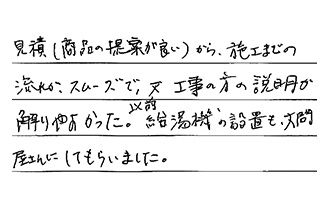 見積(商品の提案が良い)から、施工までの
流れが、スムーズで、又 工事の方の説明が
解り伸よかった。以前 給湯機の設置も、交問
屋さんにしてもらいました。